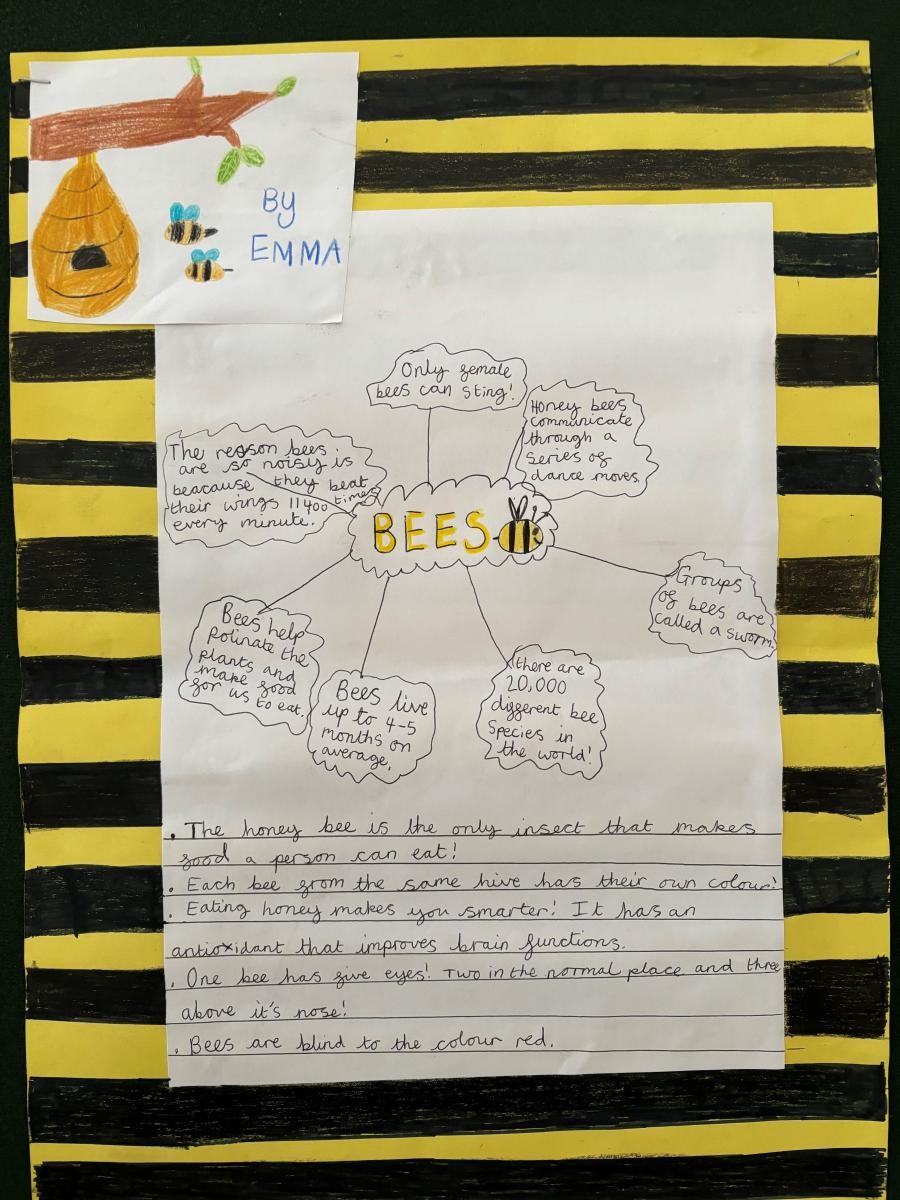 By
EMMA
Only female
bees can sting!
Honey bees
communicate
through a
series of
dance moves.
The reason bees
are so noisy is
beacause they beat
their wings 11400 times
every minute.
BEES
Groups
of bees are
called a sworm.
Bees help
Polinate the
plants and
make food
for us to eat.
Bees live
up to 4-5
months on
average.
there are
20,000
different bee
Species in
the world!
. The honey bee is the only insect that makes
food a person can eat!
. Each bee from the same hive has their own colour!
. Eating honey makes you smarter! It has an
antioxidant that improves brain functions.
. One bee has five eyes! Two in the normal place and three
above it's nose!
. Bees are blind to the colour red.